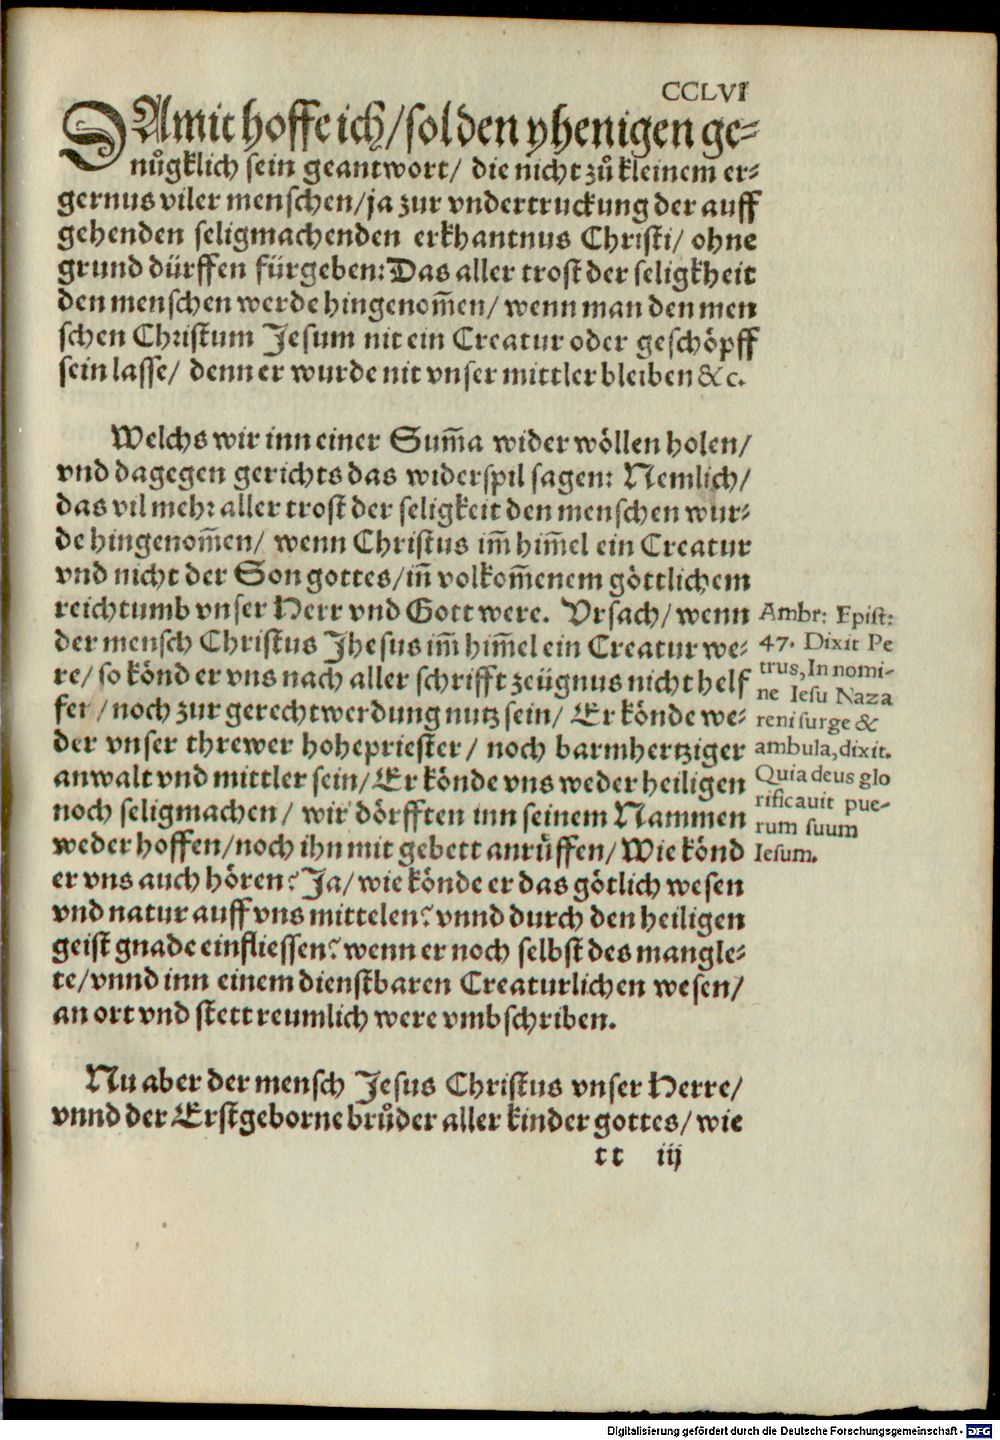 CCLVI
DAmit hoffe ich/ sol den yhenigen ge-
nůgklich sein geantwort/ die nicht zů kleinem er-
gernus viler menschen/ ja zur vndertruckung der auff
gehenden seligmachenden erkhantnus Christi/ ohne
grund dürffen fürgeben: Das aller trost der seligkheit
den menschen werde hingenom̃en/ wenn man den men
schen Christum Jesum nit ein Creatur oder geschöpff
sein lasse/ denn er wurde nit vnser mittler bleiben &c.
Welchs wir inn einer Sum̃a wider wöllen holen/
vnd dagegen gerichts das widerspil sagen: Nemlich/
das vil mehr aller trost der seligkeit den menschen wur-
de hingenom̃en/ wenn Christus im̃ him̃el ein Creatur
vnd nicht der Son gottes/ iñ volkom̃enem göttlichem
reichtumb vnser Herr vnd Gott were. Vrsach/ wenn
der mensch Christus Jhesus im̃ him̃el ein Creatur we-
re/ so könd er vns nach aller schrifft zeügnus nicht helf
fen/ noch zur gerechtwerdung nutz sein/ Er könde we-
der vnser threwer hohepriester/ noch barmhertziger
anwalt vnd mittler sein/ Er könde vns weder heiligen
noch seligmachen/ wir dörfften inn seinem Nammen
weder hoffen/ noch ihn mit gebett anrůffen/ Wie könd
er vns auch hören? Ja/ wie könde er das götlich wesen
vnd natur auff vns mittelen? vnnd durch den heiligen
geist gnade einfliessen? wenn er noch selbst des mangle-
te/ vnnd inn einem dienstbaren Creaturlichen wesen/
an ort vnd stett reumlich were vmbschriben.
Ambr: Epist:
47. Dixit Pe
trus, In nomi-
ne Iesu Naza
reni surge &
ambula, dixit.
Quia deus glo
rificauit pue-
rum suum
Iesum.
Nu aber der mensch Jesus Christus vnser Herre/
vnnd der Erstgeborne brůder aller kinder gottes/ wie
tt iij
Digitalisierung gefördert durch die Deutsche Forschungsgemeinschaft - DFG